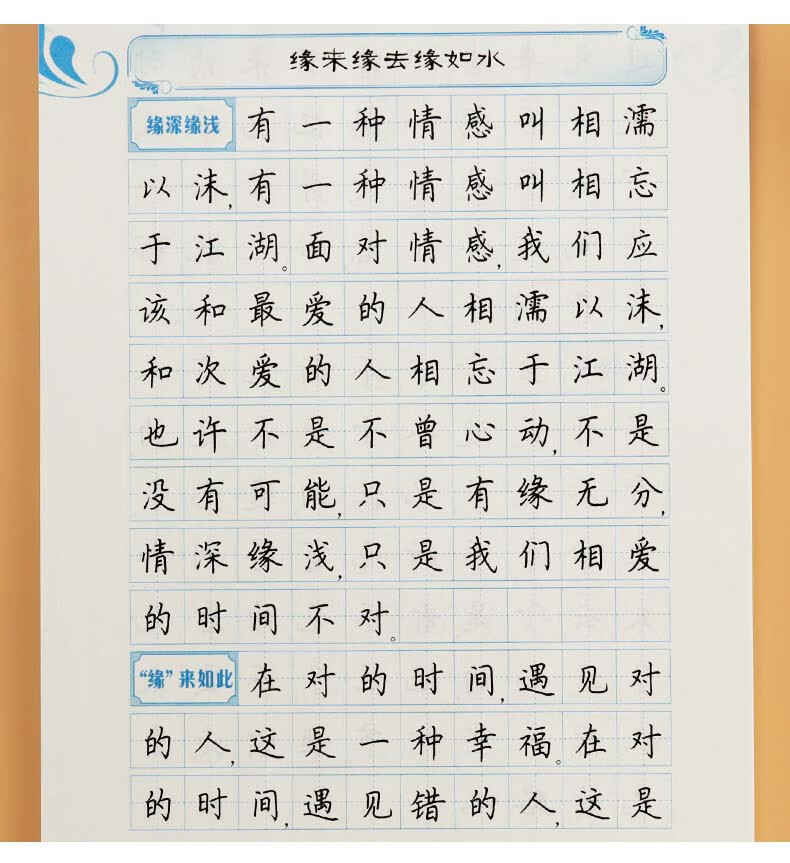 缘来缘去缘如水
缘深缘浅 有一种情感叫相濡
以沫,有一种情感叫相忘
于江湖。面对情感,我们应
该和最爱的人相濡以沫,
和次爱的人相忘于江湖。
也许不是不曾心动,不是
没有可能,只是有缘无分,
情深缘浅,只是我们相爱
的时间不对。
“缘”来如此 在对的时间,遇见对
的人,这是一种幸福。在对
的时间,遇见错的人,这是